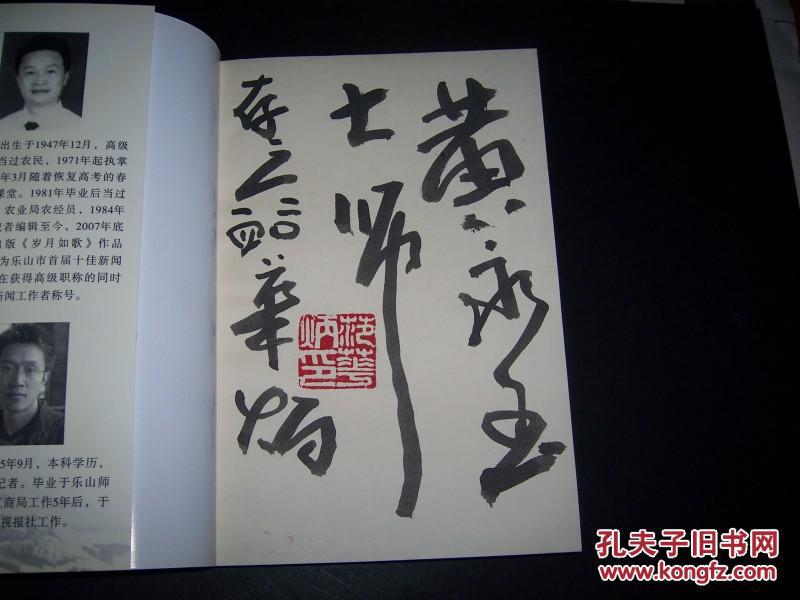 出生于1947年12月，高级
当过农民，1971年起执掌
年3月随着恢复高考的春
课堂。1981年毕业后当过
农业局农经员，1984年
记者编辑至今，2007年底
出版《岁月如歌》作品
为乐山市首届十佳新闻
在获得高级职称的同时
新闻工作者称号。
5年9月，本科学历，
记者。毕业于乐山师
工商局工作5年后，于
视报社工作。
黄永玉
大师
存之
华炳
孔夫子旧书网
www.kongfz.com